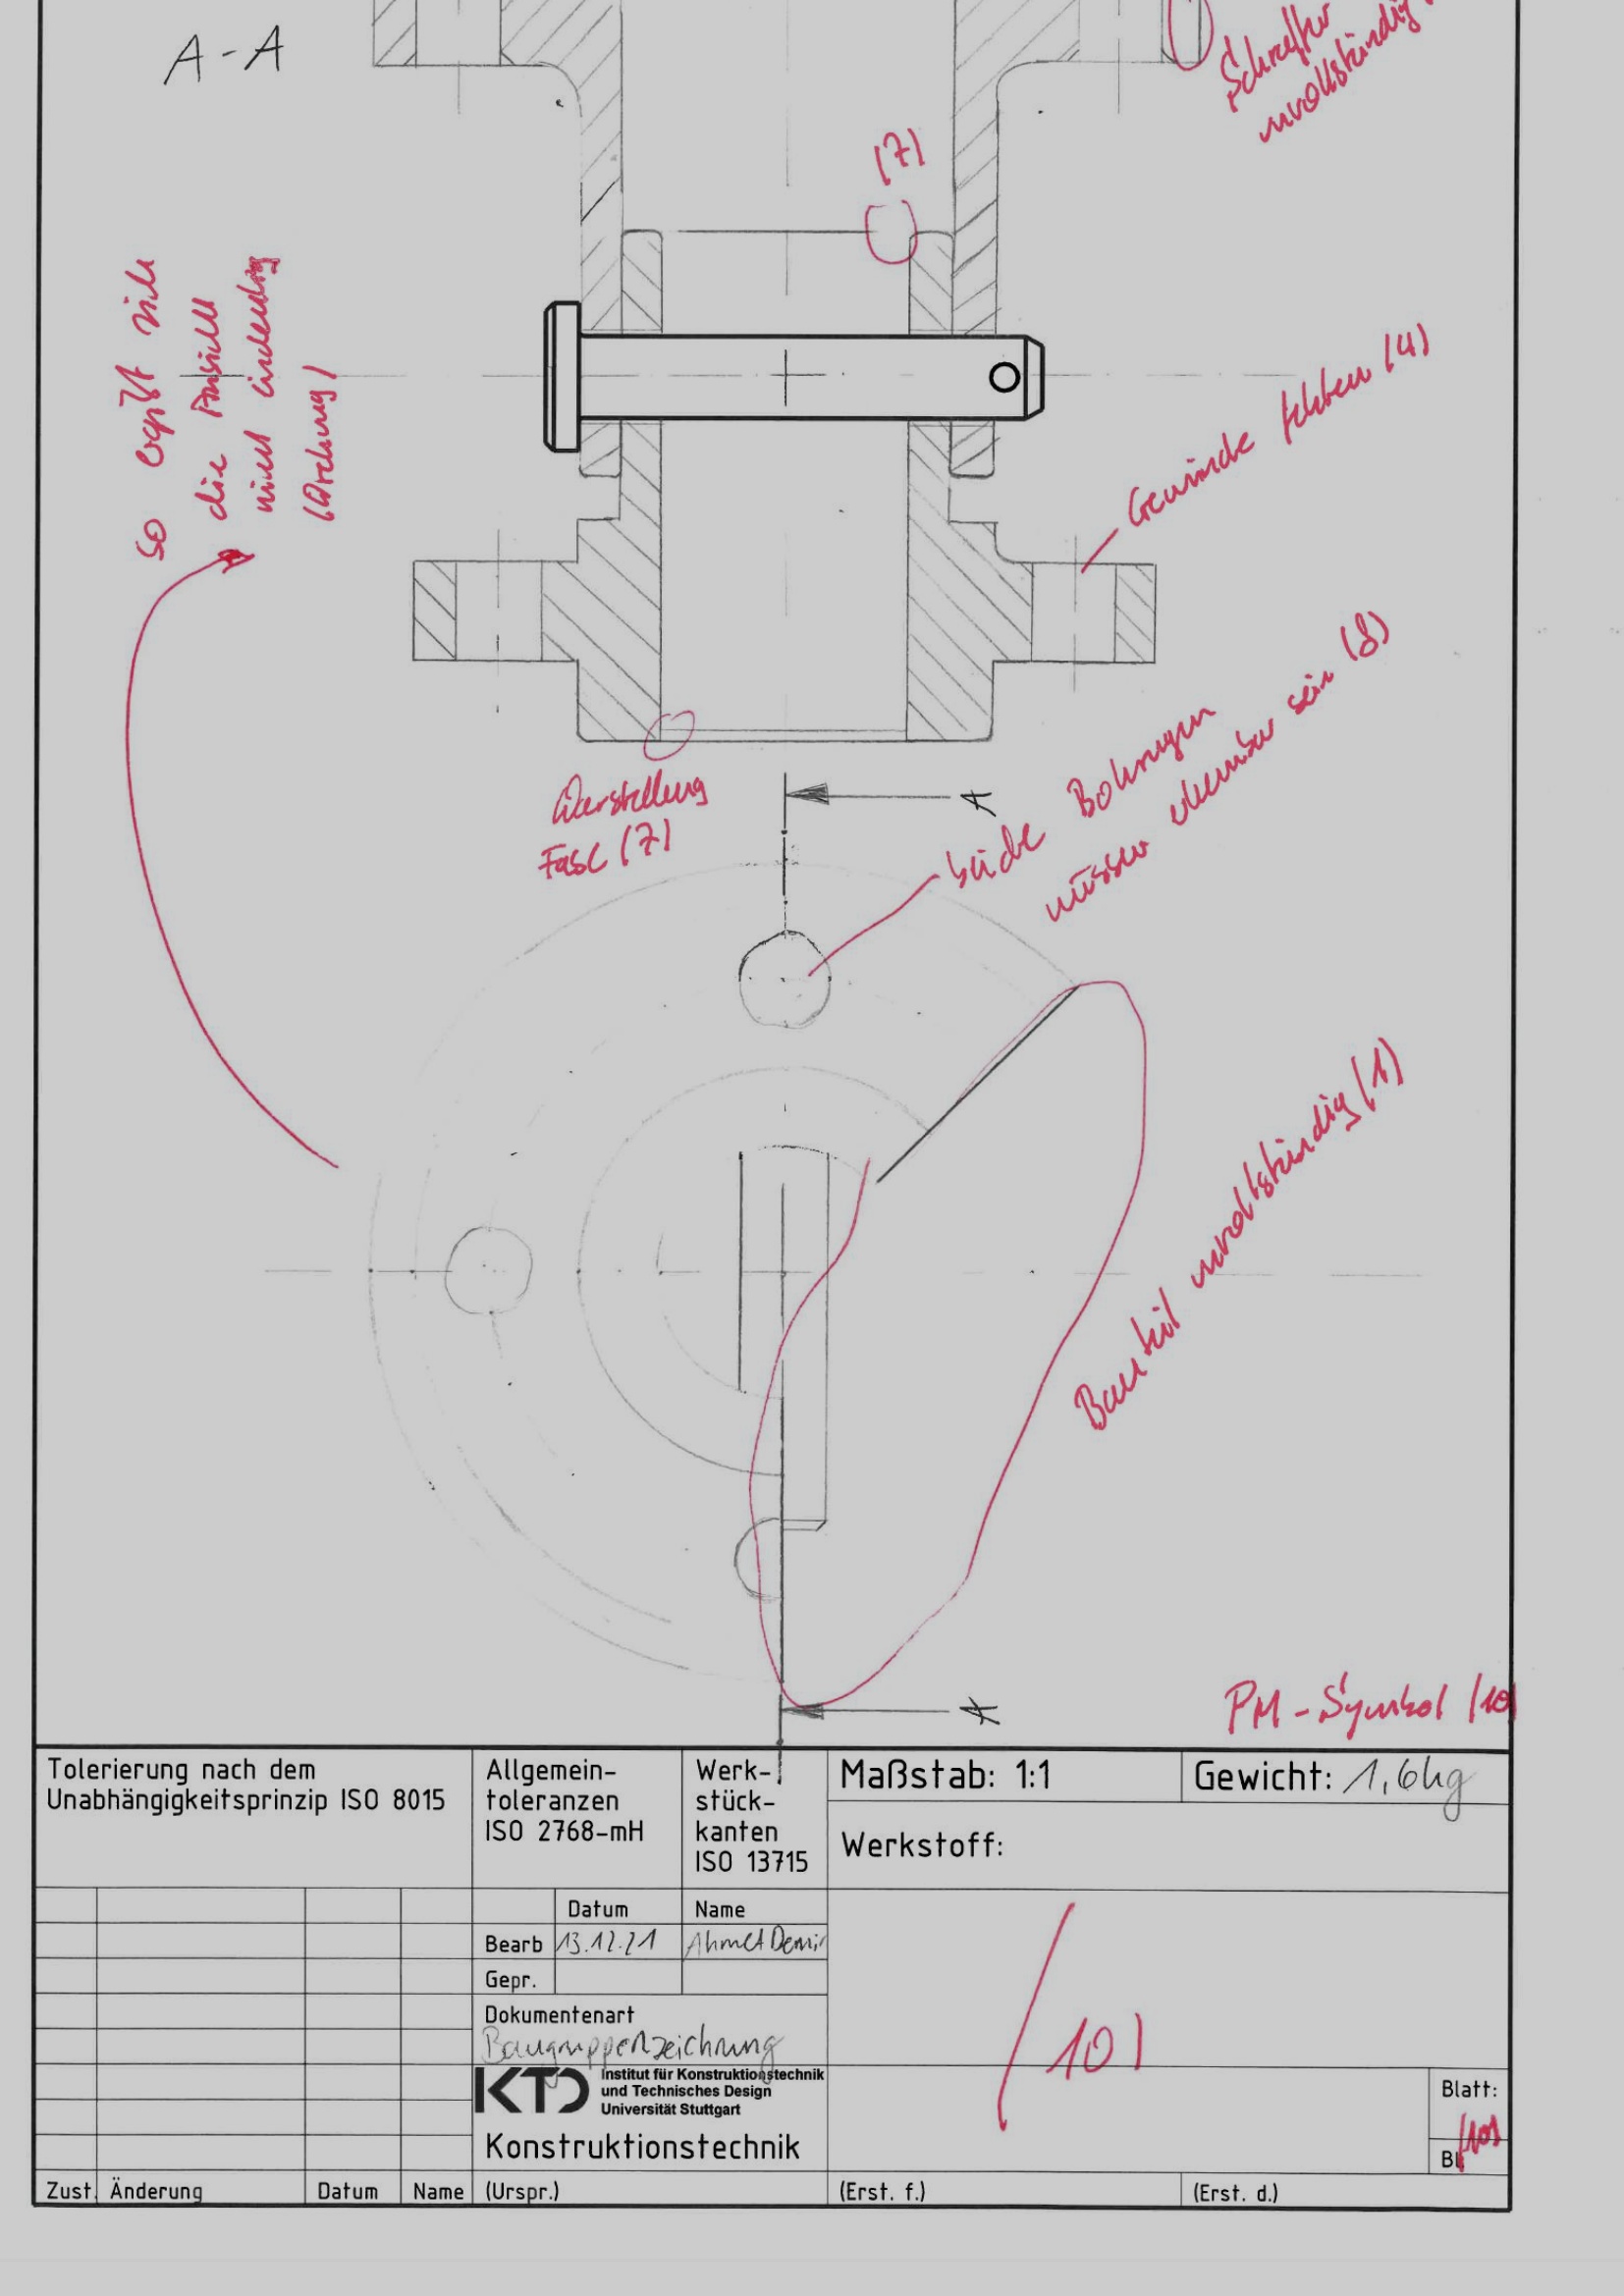 A-A
Schraffur
unvollständig
(7)
so ergibt sich
die Ansicht
nicht eindeutig
(Drehung)
Gewinde fehlen (4)
Darstellung
Fase (7)
A
beide Bohrungen
müssen sein (8)
Bauteil unvollständig (1)
A
PM-Symbol (10)
Tolerierung nach dem
Unabhängigkeitsprinzip ISO 8015
Allgemein-
toleranzen
ISO 2768-mH
Werk-
stück-
kanten
ISO 13715
Maßstab: 1:1
Gewicht: 1,6kg
Werkstoff:
Datum
Name
Bearb
13.12.21
Ahmet Demir
Gepr.
Dokumentenart
Baugruppenzeichnung
KTD
Institut für Konstruktionstechnik
und Technisches Design
Universität Stuttgart
Konstruktionstechnik
(10)
Blatt:
(10)
Bl
Zust.
Änderung
Datum
Name
(Urspr.)
(Erst. f.)
(Erst. d.)